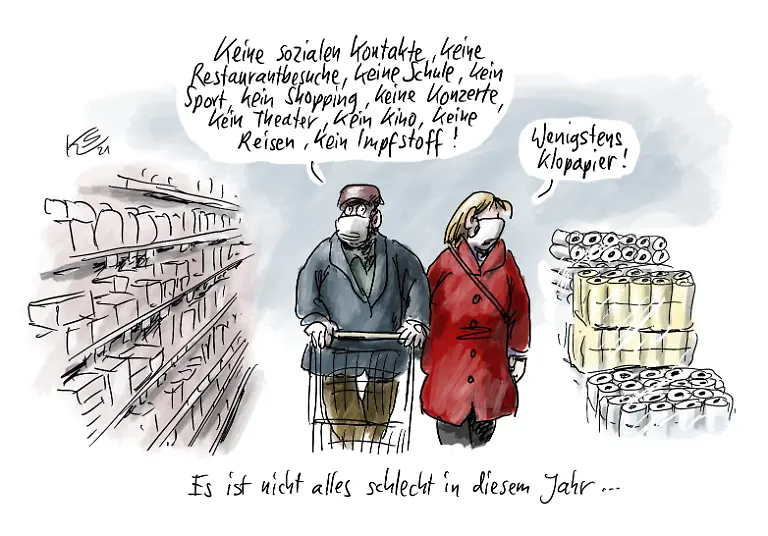 Keine sozialen Kontakte, keine
Restaurantbesuche, keine Schule, kein
Sport, kein Shopping, keine Konzerte,
kein Theater, kein Kino, keine
Reisen, kein Impfstoff!
Wenigstens
Klopapier!
Es ist nicht alles schlecht in diesem Jahr...